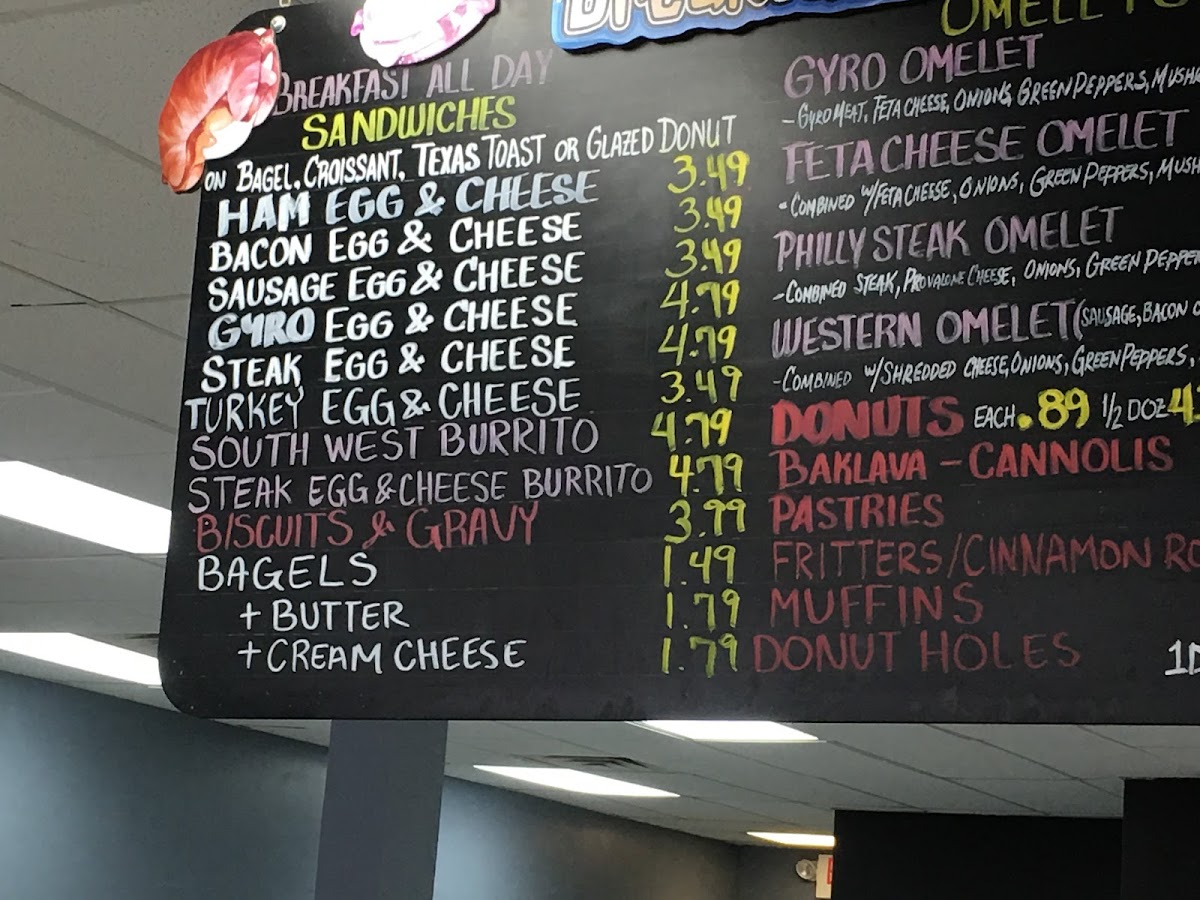 BREAKFAST ALL DAY
SANDWICHES
ON BAGEL, CROISSANT, TEXAS TOAST OR GLAZED DONUT
HAM EGG & CHEESE 3.49
BACON EGG & CHEESE 3.49
SAUSAGE EGG & CHEESE 3.49
GYRO EGG & CHEESE 4.79
STEAK EGG & CHEESE 4.79
TURKEY EGG & CHEESE 3.49
SOUTH WEST BURRITO 4.79
STEAK EGG & CHEESE BURRITO 4.79
BISCUITS & GRAVY 3.99
BAGELS 1.49
+ BUTTER 1.79
+ CREAM CHEESE 1.79
GYRO OMELET
- GYRO MEAT, FETA CHEESE, ONIONS, GREEN PEPPERS,
FETA CHEESE OMELET
- COMBINED W/FETA CHEESE, ONIONS, GREEN PEPPERS,
PHILLY STEAK OMELET
- COMBINED STEAK, PROVALONE CHEESE, ONIONS, GREEN
WESTERN OMELET (SAUSAGE, BACON
- COMBINED W/SHREDDED CHEESE, ONIONS, GREEN PEPPERS,
DONUTS EACH .89 1/2 DOZ
BAKLAVA - CANNOLIS
PASTRIES
FRITTERS/CINNAMON
MUFFINS
DONUT HOLES